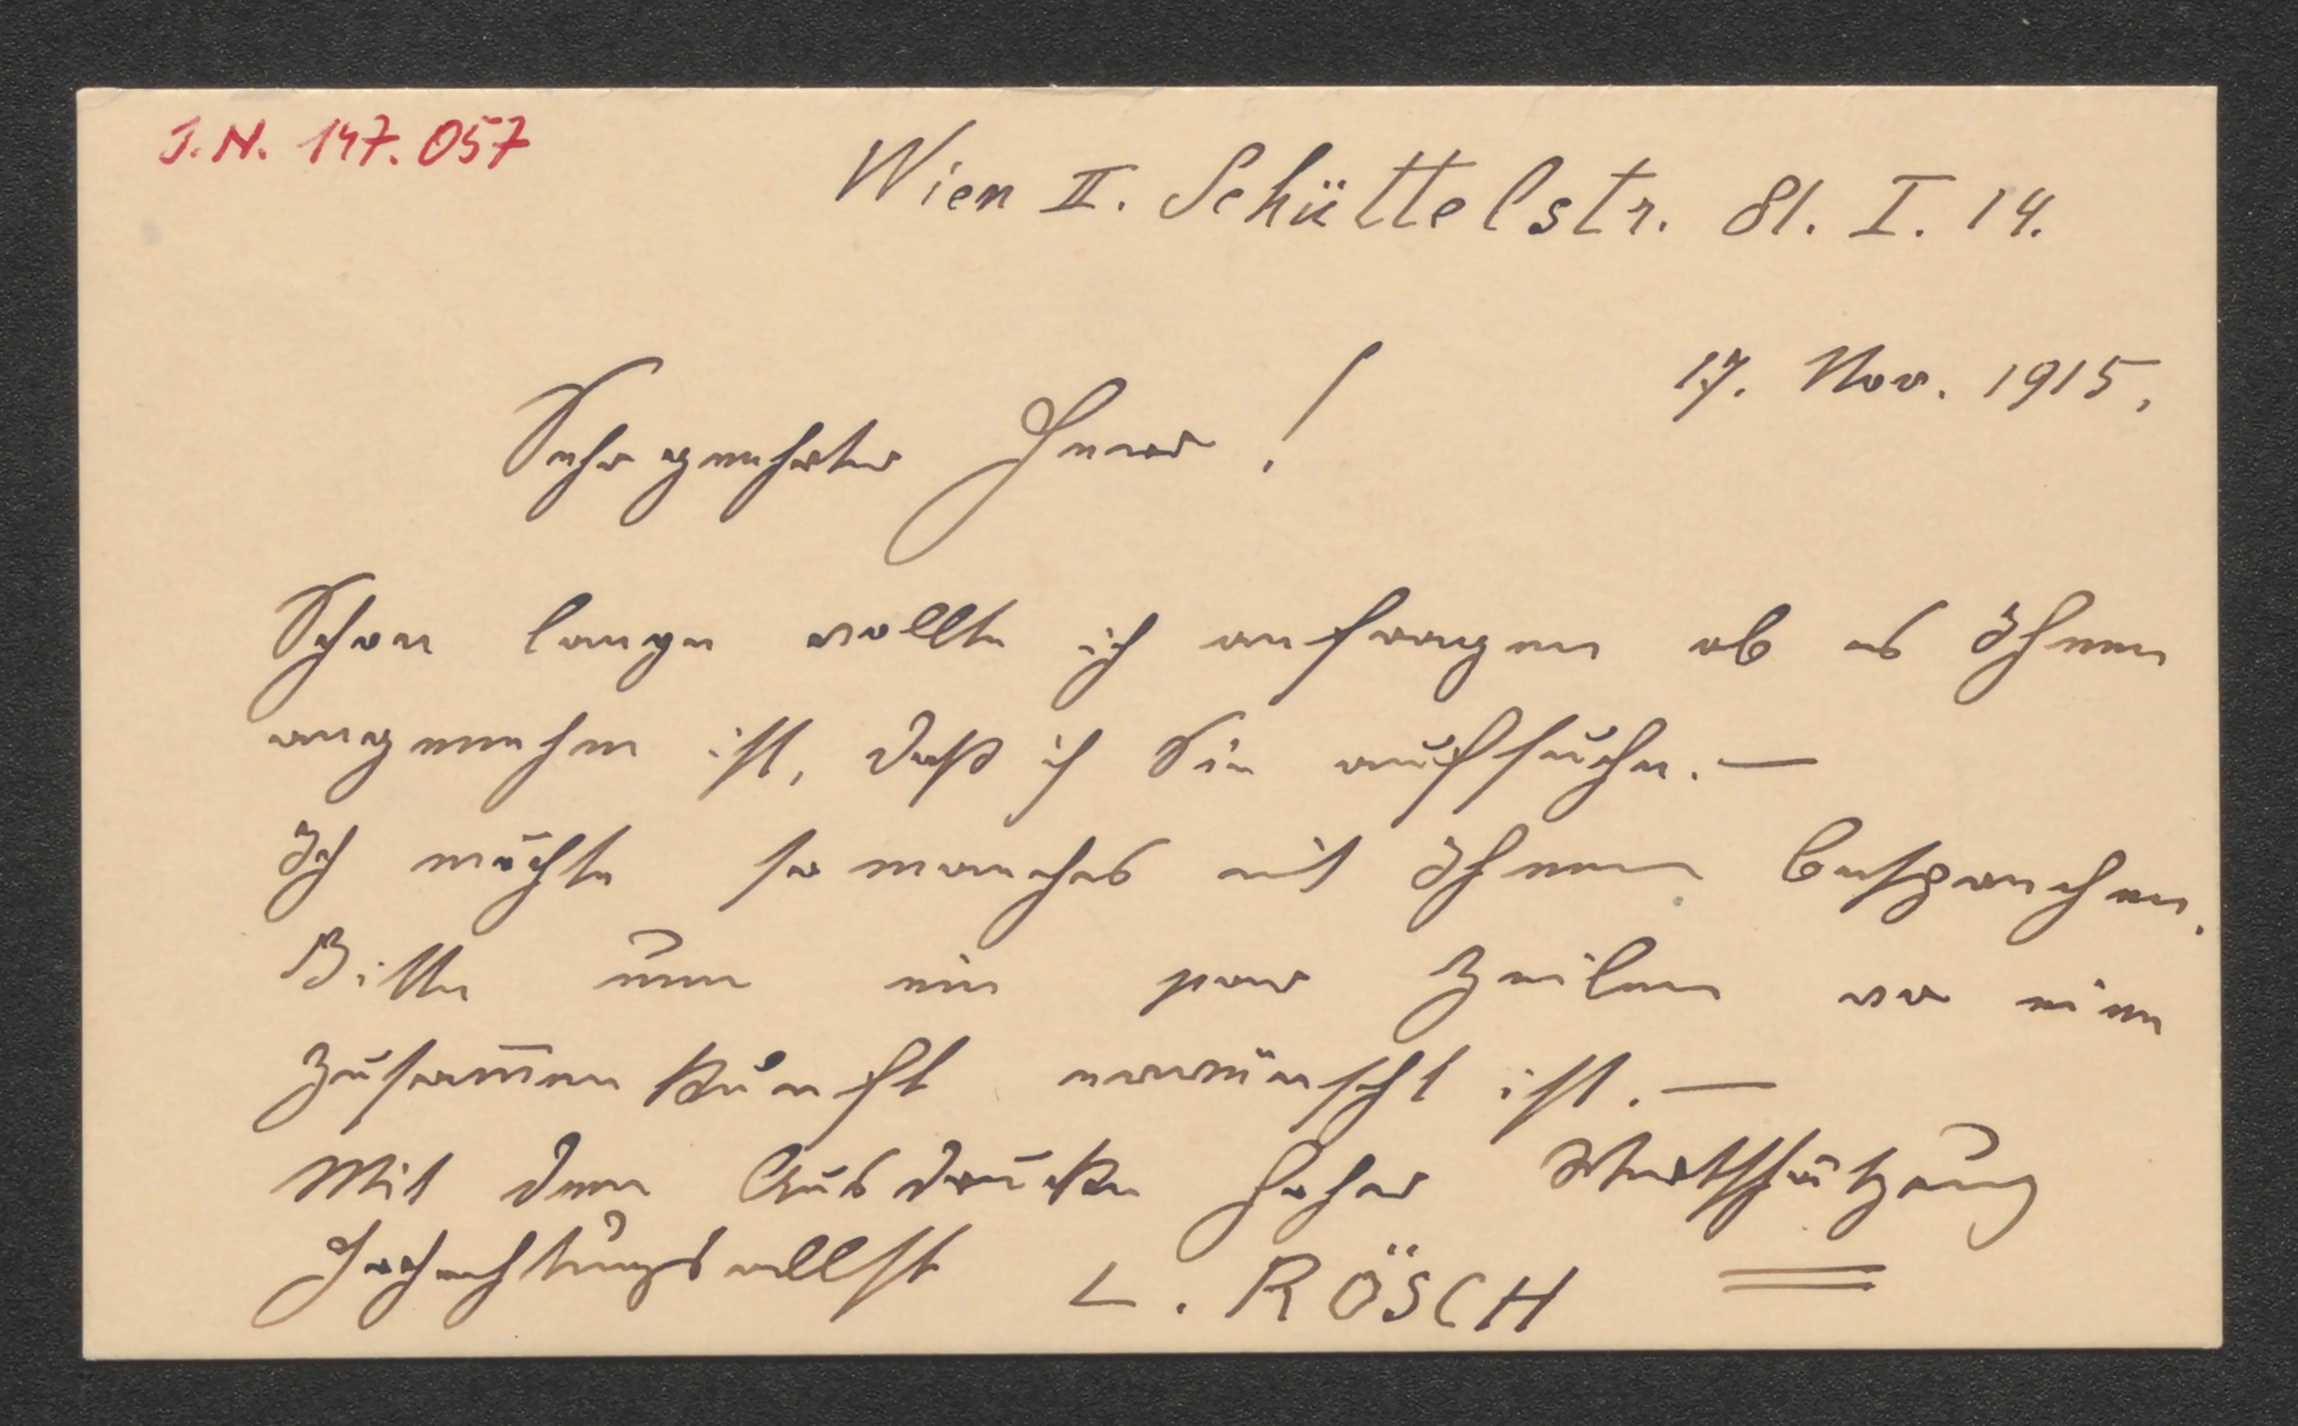 J.N. 147.057
Wien II. Schüttelstr. 81. I. 14.
17. Nov. 1915.
Sehr geehrter Herr!
Schon lange wollte ich anfragen ob es Ihnen
angenehm ist, daß ich Sie aufsuche. —
Ich möchte so manches mit Ihnen besprechen.
Bitte um ein par Zeilen wo eine
Zusam̅enkunft erwünscht ist. —
Mit dem Ausdrucke hoher Wertschätzung
Hochachtungsvollst L. RÖSCH